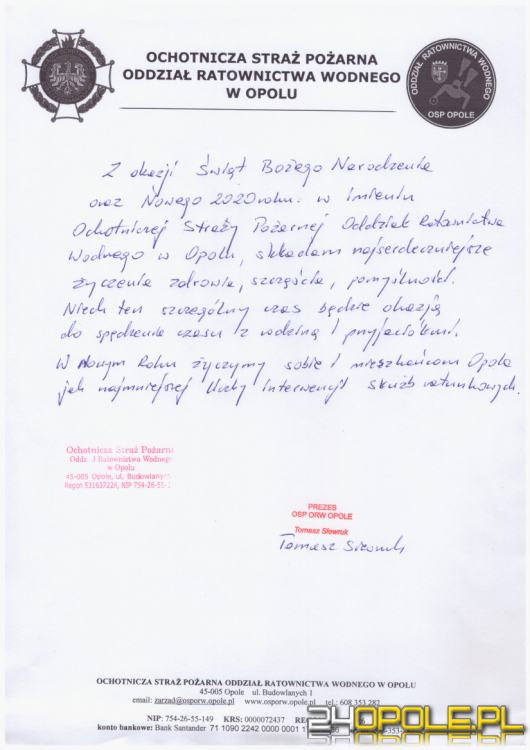 OCHOTNICZA STRAŻ POŻARNA
ODDZIAŁ RATOWNICTWA WODNEGO
W OPOLU
ODDZIAŁ RATOWNICTWA WODNEGO
OSP OPOLE
Z okazji Świąt Bożego Narodzenia
oraz Nowego 2020 roku. w imieniu
Ochotniczej Straży Pożarnej Oddział Ratownictwa
Wodnego w Opolu, składam najserdeczniejsze
życzenia zdrowia, szczęścia, pomyślności.
Niech ten szczególny czas będzie okazją
do spędzenia czasu z rodziną i przyjaciółmi.
W Nowym Roku życzymy sobie i mieszkańcom Opola
jak najmniejszej liczby interwencji służb ratunkowych.
Ochotnicza Straż Pożarna
Oddz J Ratownictwa Wodnego
w Opolu
45-005 Opole, ul. Budowlanych
Regon 531637226, NIP 754-26-55-1
PREZES
OSP ORW OPOLE
Tomasz Siewruk
Tomasz Siewruk
OCHOTNICZA STRAŻ POŻARNA ODDZIAŁ RATOWNICTWA WODNEGO W OPOLU
45-005 Opole ul. Budowlanych 1
email: zarzad@osporw.opole.pl www.osporw.opole.pl tel.: 608 353 282
NIP: 754-26-55-149 KRS: 0000072437
konto bankowe: Bank Santander 71 1090 2242 0000 0001
24OPOLE.PL